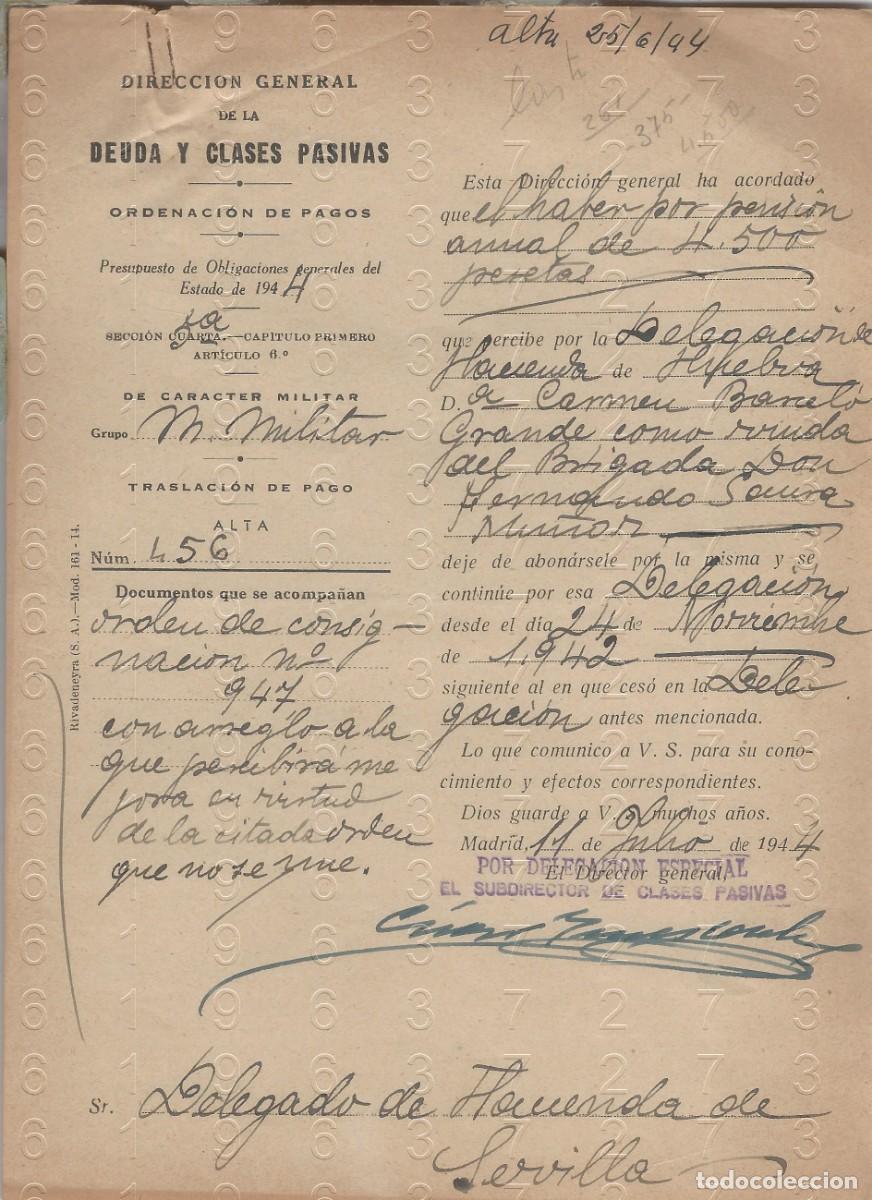 alta 25/6/44
375
4500
DIRECCION GENERAL
DE LA
DEUDA Y CLASES PASIVAS
ORDENACIÓN DE PAGOS
Presupuesto de Obligaciones generales del
Estado de 1944
5ª
SECCIÓN CUARTA.—CAPITULO PRIMERO
ARTÍCULO 6.º
DE CARACTER MILITAR
Grupo M. Militar
TRASLACIÓN DE PAGO
ALTA
Núm. 456
Documentos que se acompañan
órden de consig-
nacion nº
947
con arreglo a la
que percibirá me
jora en virtud
de la citada orden
que no se une.
Rivadeneyra (S. A.).—Mod. 161-14.
Esta Dirección general ha acordado
que el haber por pensión
anual de 4.500
pesetas
que percibe por la Delegación de
Hacienda de Huelva
D.ª Carmen Barceló
Grande como viuda
del Brigada Don
Fernando Saura
Muñoz
deje de abonársele por la misma y se
continúe por esa Delegación
desde el día 24 de Noviembre
de 1.942
siguiente al en que cesó en la Dele-
gación antes mencionada.
Lo que comunico a V. S. para su cono-
cimiento y efectos correspondientes.
Dios guarde a V. S. muchos años.
Madrid, 11 de Julio de 1944
POR DELEGACION ESPECIAL
El Director general,
EL SUBDIRECTOR DE CLASES PASIVAS
Sr. Delegado de Hacienda de
Sevilla
todocoleccion